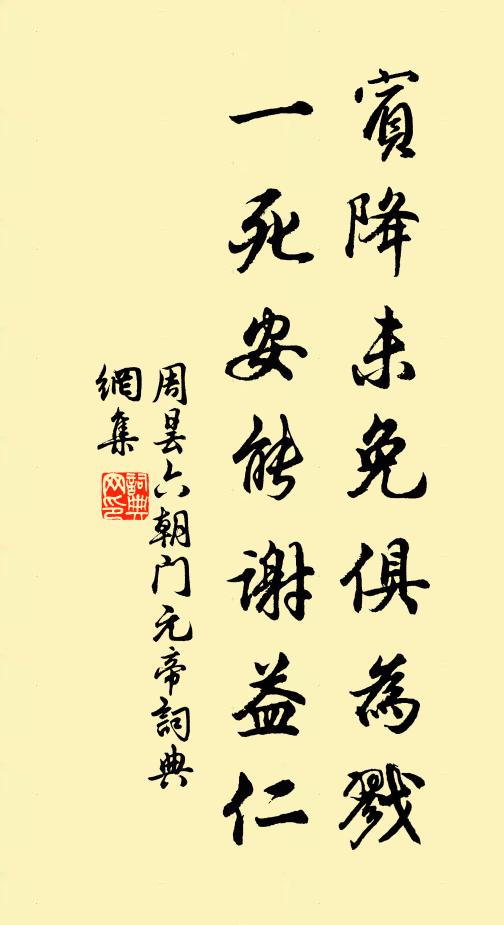 賓降未免俱為戮
一死安能謝益仁
周曇六朝門元帝詞典
網集
詞典
网印